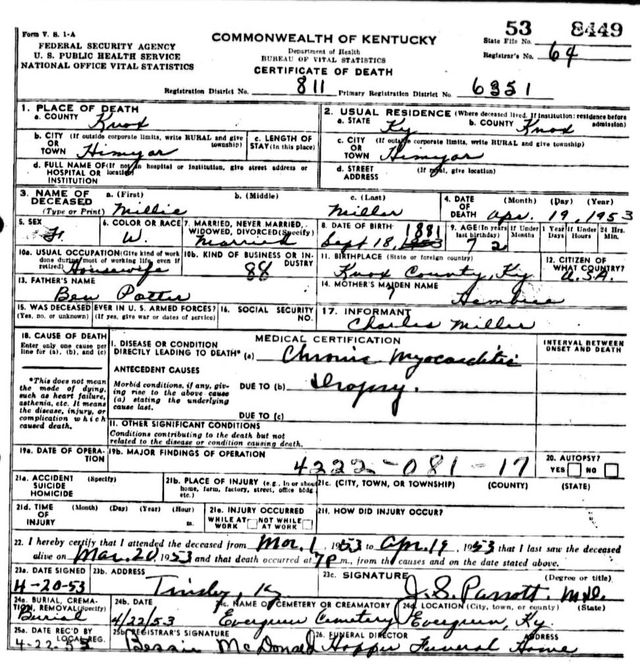 Form V. S. 1-A
FEDERAL SECURITY AGENCY
U. S. PUBLIC HEALTH SERVICE
NATIONAL OFFICE VITAL STATISTICS
COMMONWEALTH OF KENTUCKY
Department of Health
BUREAU OF VITAL STATISTICS
CERTIFICATE OF DEATH
53 8449
State File No.
Registrar's No. 64
Registration District No. 811 Primary Registration District No. 6351
1. PLACE OF DEATH
a. COUNTY Knox
b. CITY (If outside corporate limits, write RURAL and give township)
OR TOWN Himyar
c. LENGTH OF STAY (in this place)
d. FULL NAME OF (If not in hospital or institution, give street address or location)
HOSPITAL OR INSTITUTION
2. USUAL RESIDENCE (Where deceased lived. If institution: residence before admission)
a. STATE Ky b. COUNTY Knox
c. CITY (If outside corporate limits, write RURAL and give township)
OR TOWN Himyar
d. STREET ADDRESS (If rural, give location)
3. NAME OF DECEASED (Type or Print)
a. (First) Millie
b. (Middle)
c. (Last) Miller
4. DATE OF DEATH (Month) (Day) (Year) Apr. 19, 1953
5. SEX F
6. COLOR OR RACE W.
7. MARRIED, NEVER MARRIED, WIDOWED, DIVORCED (Specify) Married
8. DATE OF BIRTH Sept 18, 1881
9. AGE (In years last birthday) 72
If Under 1 Year Months Days
If Under 24 Hrs. Hours Min.
10a. USUAL OCCUPATION (Give kind of work done during most of working life, even if retired) Housewife
10b. KIND OF BUSINESS OR INDUSTRY 88
11. BIRTHPLACE (State or foreign country) Knox County, Ky
12. CITIZEN OF WHAT COUNTRY? U.S.A.
13. FATHER'S NAME Ben Potter
14. MOTHER'S MAIDEN NAME
15. WAS DECEASED EVER IN U. S. ARMED FORCES?
(Yes, no, or unknown) (If yes, give war or dates of service)
16. SOCIAL SECURITY NO.
17. INFORMANT Charles Miller
18. CAUSE OF DEATH
Enter only one cause per line for (a), (b), and (c)
*This does not mean the mode of dying, such as heart failure, asthenia, etc. It means the disease, injury, or complication which caused death.
MEDICAL CERTIFICATION
INTERVAL BETWEEN ONSET AND DEATH
I. DISEASE OR CONDITION DIRECTLY LEADING TO DEATH* (a) Chronic Myocarditis
ANTECEDENT CAUSES
Morbid conditions, if any, giving rise to the above cause (a) stating the underlying cause last.
DUE TO (b) Dropsy.
DUE TO (c)
II. OTHER SIGNIFICANT CONDITIONS
Conditions contributing to the death but not related to the disease or condition causing death.
19a. DATE OF OPERATION
19b. MAJOR FINDINGS OF OPERATION
4222-081-17
20. AUTOPSY?
YES NO
21a. ACCIDENT SUICIDE HOMICIDE
21b. PLACE OF INJURY (e.g., in or about home, farm, factory, street, office bldg., etc.)
21c. (CITY, TOWN, OR TOWNSHIP) (COUNTY) (STATE)
21d. TIME OF INJURY (Month) (Day) (Year) (Hour) m.
21e. INJURY OCCURRED
WHILE AT WORK NOT WHILE AT WORK
21f. HOW DID INJURY OCCUR?
22. I hereby certify that I attended the deceased from Mar. 1, 1953 to Apr. 19, 1953 that I last saw the deceased
alive on Mar. 20, 1953 and that death occurred at 7 P m., from the causes and on the date stated above.
23a. DATE SIGNED 4-20-53
23b. ADDRESS Trinsley, Ky
23c. SIGNATURE (Degree or title) J. S. Parrott M.D.
24a. BURIAL, CREMATION, REMOVAL (Specify) Burial
24b. DATE 4/22/53
24c. NAME OF CEMETERY OR CREAMATORY Evergreen Cemetery
24d. LOCATION (City, town, or county) (State) Evergreen, Ky.
25a. DATE REC'D BY LOCAL REG. 4-22-53
25b. REGISTRAR'S SIGNATURE Bessie McDonald
26. FUNERAL DIRECTOR ADDRESS Hopper Funeral Home